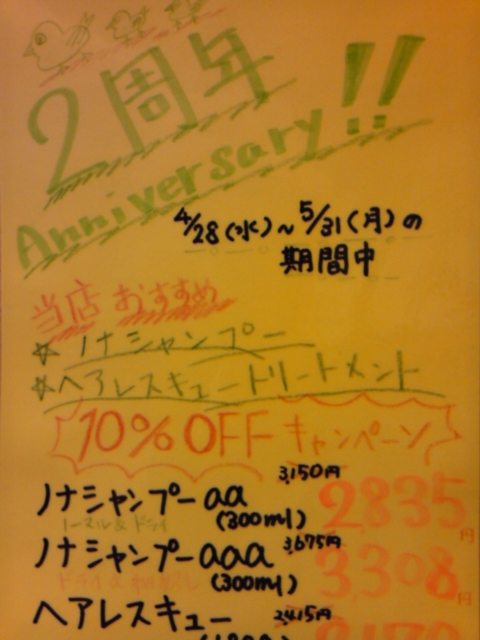 2周年!!
Anniversary
4/28(水)~5/31(月)の
期間中
当店おすすめ
☆ノナシャンプー
☆ヘアレスキュートリートメント
10%OFFキャンペーン
ノナシャンプーaa 3,150円
ノーマル&ドライ (300ml) 2,835円
ノナシャンプーaaa 3,675円
(300ml) 3,308円
ヘアレスキュー 2,415円